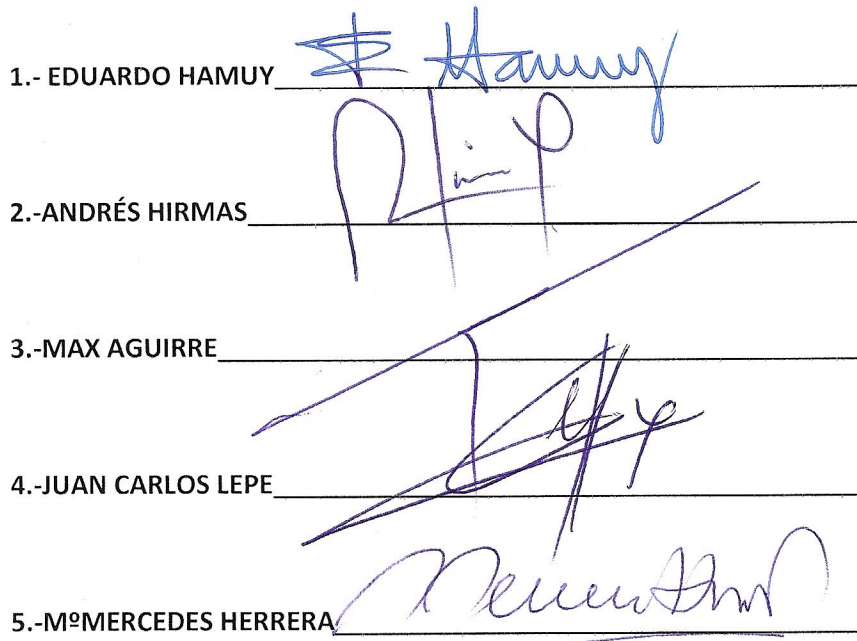 1.- EDUARDO HAMUY Hamuy
2.-ANDRÉS HIRMAS
3.-MAX AGUIRRE
4.-JUAN CARLOS LEPE
5.-MºMERCEDES HERRERA